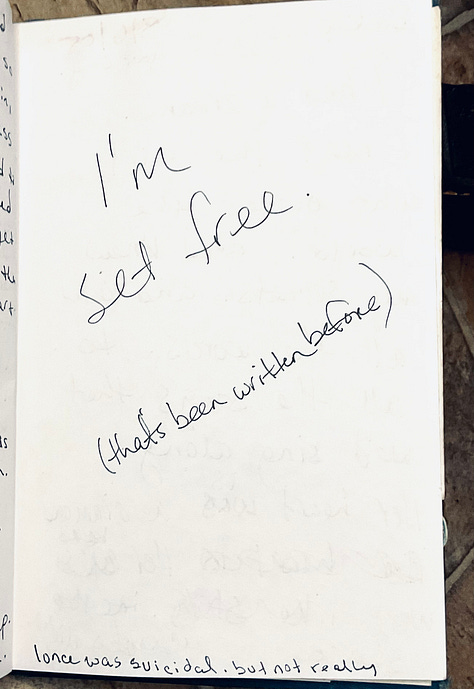 I'm
set free.
(that's been written before)
I once was suicidal. but not really